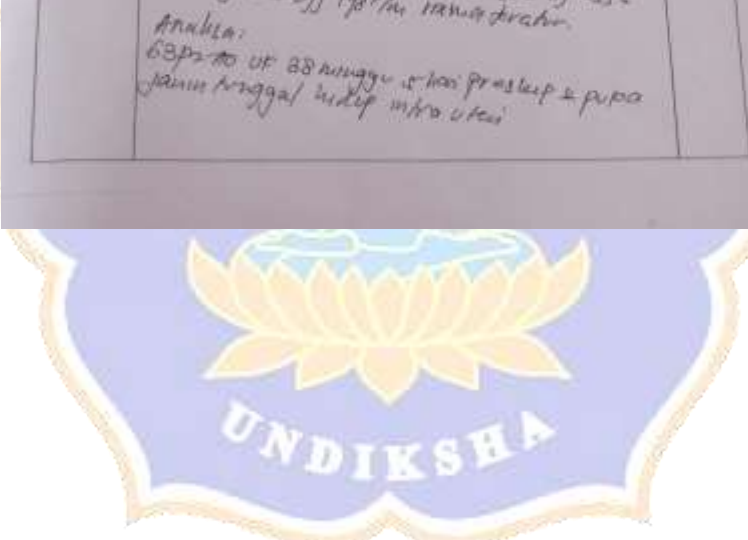 irama teratur.
Analisa:
G3P2A0 UK 38 minggu 5 hari preskep U puka
janin tunggal hidup intra uteri
UNDIKSHA